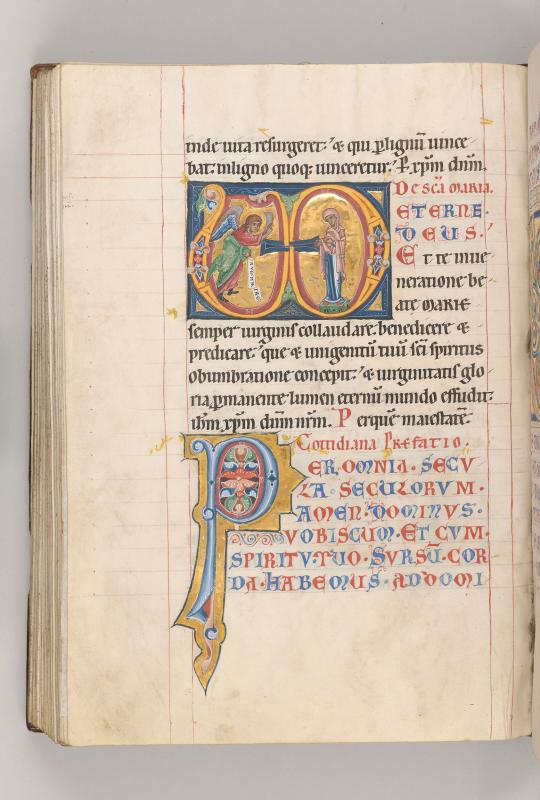 inde uita resurgeret: & qui p lignū uince
bat: in ligno quoq; uinceretur: P xp̄m dn̄m.
De sc̄a maria.
ETERNE
DEUS.
Et te in ue
neratione be
ate MARIE
semper uirginis collaudare: benedicere &
predicare. que & unigenitū tuū sc̄i spiritus
obumbratione concepit: & uirginitatis glo
ria p̄manente lumen eternū mundo effudit:
ih̄m xp̄m dn̄m nr̄m. Per quē maiestatē.
Cottidiana Prefatio.
PER. OMNIA. SECV
LA SECULORVM.
AMEN. DOMINUS.
UOBISCUM. ET CVM.
SPIRITV. TUO. SVRSŪ. COR
DA. HABEMUS. AD DOMI